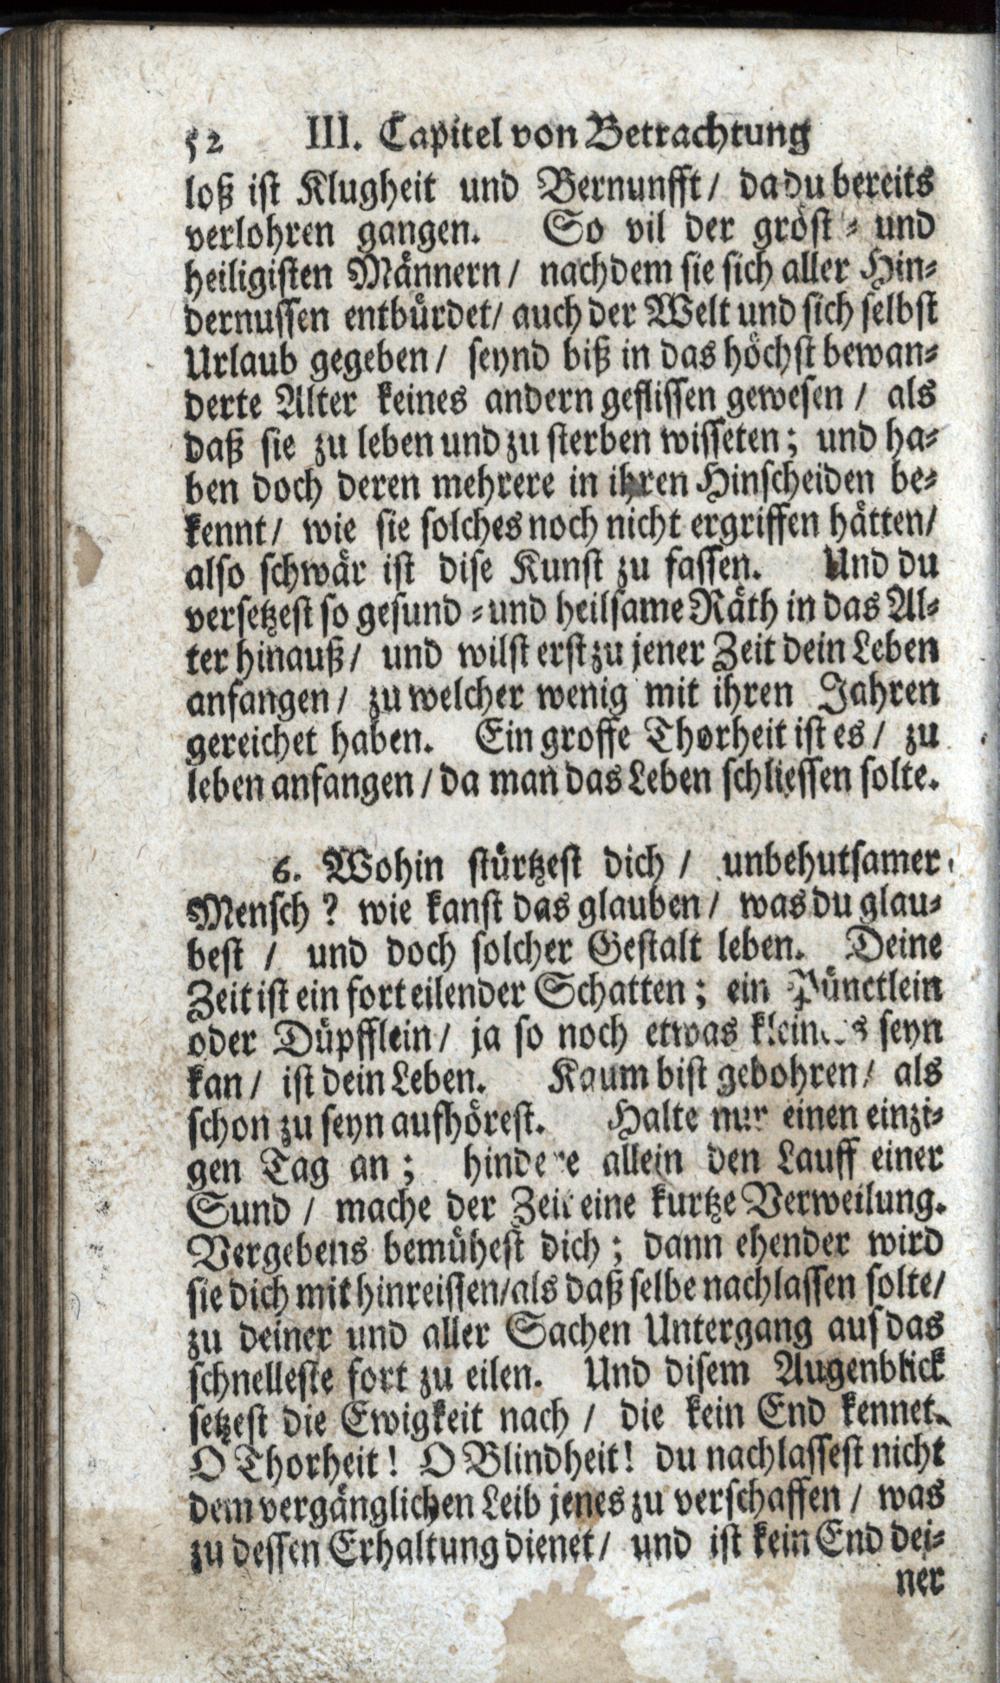 52 III. Capitel von Betrachtung
loß ist Klugheit und Vernunfft/ da du bereits
verlohren gangen. So vil der gröst- und
heiligisten Männern/ nachdem sie sich aller Hin-
dernussen entbürdet/ auch der Welt und sich selbst
Urlaub gegeben/ seynd biß in das höchst bewan-
derte Alter keines andern geflissen gewesen/ als
daß sie zu leben und zu sterben wisseten; und ha-
ben doch deren mehrere in ihren Hinscheiden be-
kennt/ wie sie solches noch nicht ergriffen hätten/
also schwär ist dise Kunst zu fassen. Und du
versetzest so gesund- und heilsame Räth in das Al-
ter hinauß/ und wilst erst zu jener Zeit dein Leben
anfangen/ zu welcher wenig mit ihren Jahren
gereichet haben. Ein grosse Thorheit ist es/ zu
leben anfangen/ da man das Leben schliessen solte.
6. Wohin stürtzest dich/ unbehutsamer
Mensch? wie kanst das glauben/ was du glau-
best/ und doch solcher Gestalt leben. Deine
Zeit ist ein fort eilender Schatten; ein Pünctlein
oder Düpfflein/ ja so noch etwas kleiners seyn
kan/ ist dein Leben. Kaum bist gebohren/ als
schon zu seyn aufhörest. Halte nur einen einzi-
gen Tag an; hindere allein den Lauff einer
Sund/ mache der Zeit eine kurtze Verweilung.
Vergebens bemühest dich; dann ehender wird
sie dich mit hinreissen/ als daß selbe nachlassen solte/
zu deiner und aller Sachen Untergang auf das
schnelleste fort zu eilen. Und disem Augenblick
setzest die Ewigkeit nach/ die kein End kennet.
O Thorheit! O Blindheit! du nachlassest nicht
dem vergänglichen Leib jenes zu verschaffen/ was
zu dessen Erhaltung dienet/ und ist kein End dei-
ner